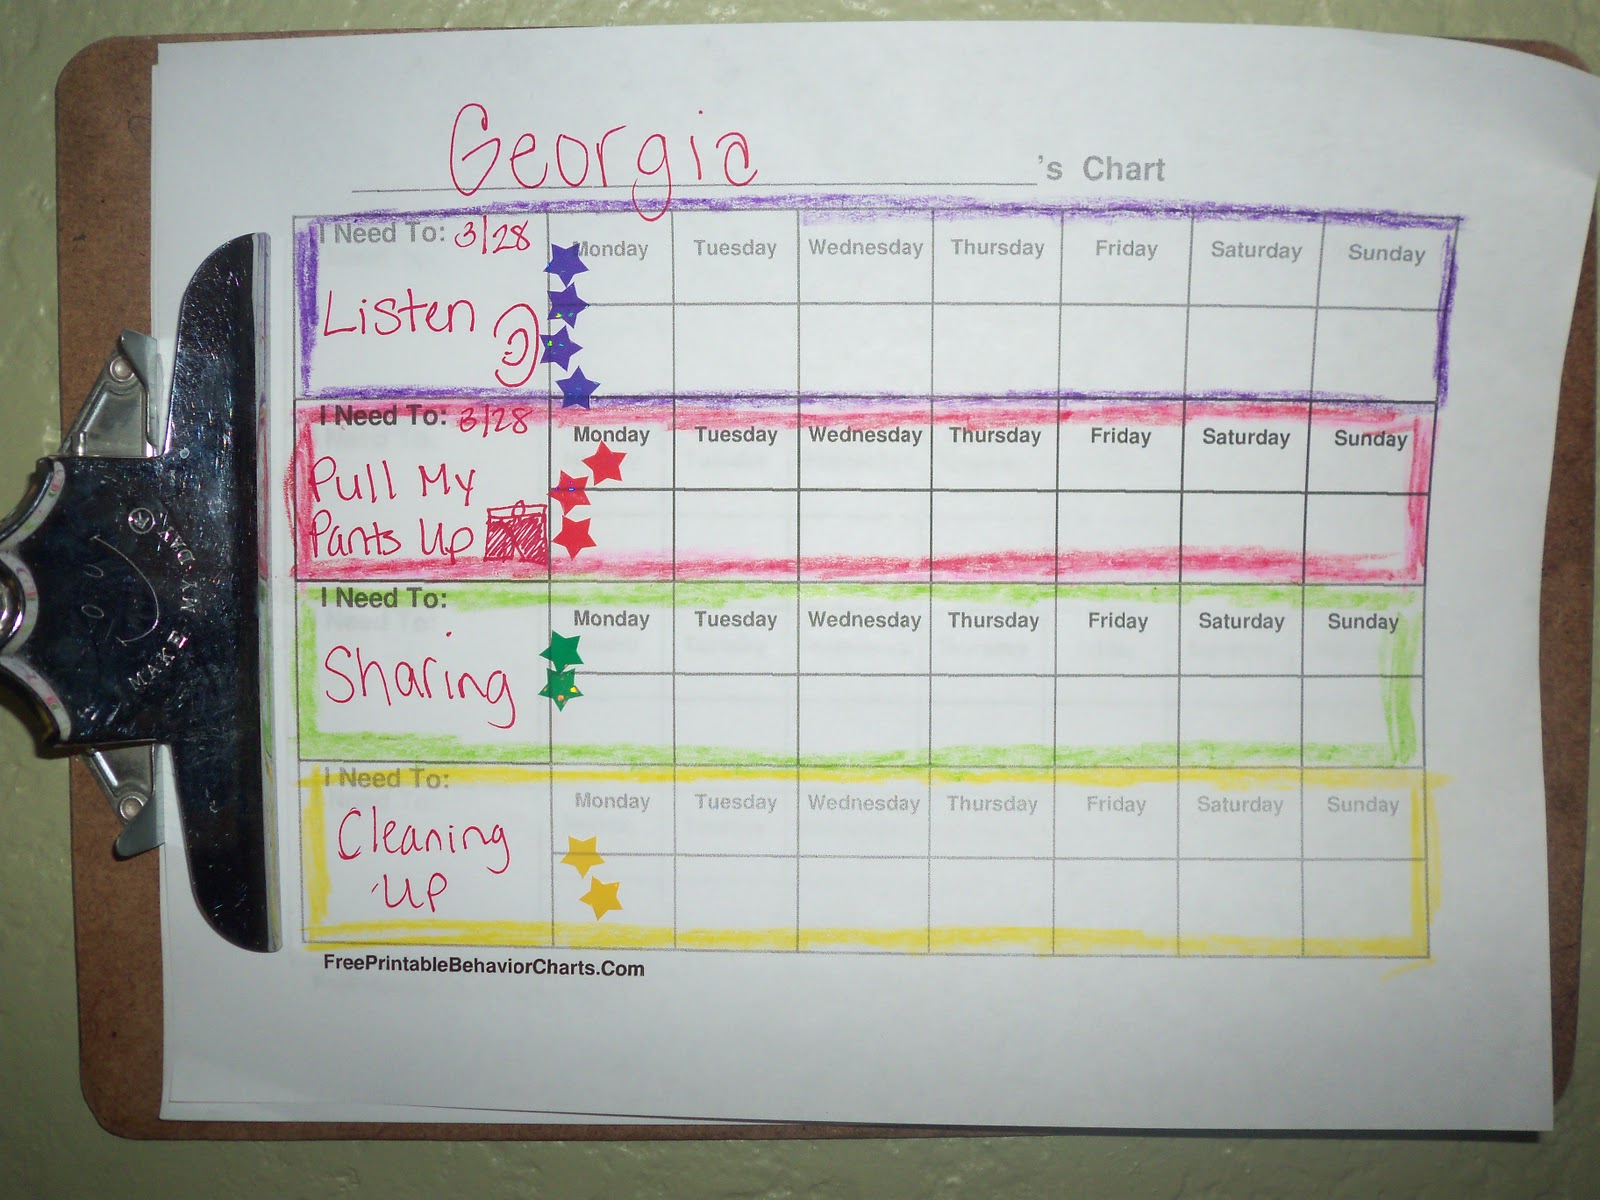 Georgia 's Chart
I Need To: 3/28 Monday Tuesday Wednesday Thursday Friday Saturday Sunday
Listen
I Need To: 3/28 Monday Tuesday Wednesday Thursday Friday Saturday Sunday
Pull My
Pants Up
I Need To: Monday Tuesday Wednesday Thursday Friday Saturday Sunday
Sharing
I Need To: Monday Tuesday Wednesday Thursday Friday Saturday Sunday
Cleaning
Up
FreePrintableBehaviorCharts.Com
MAKE MY DAY ®